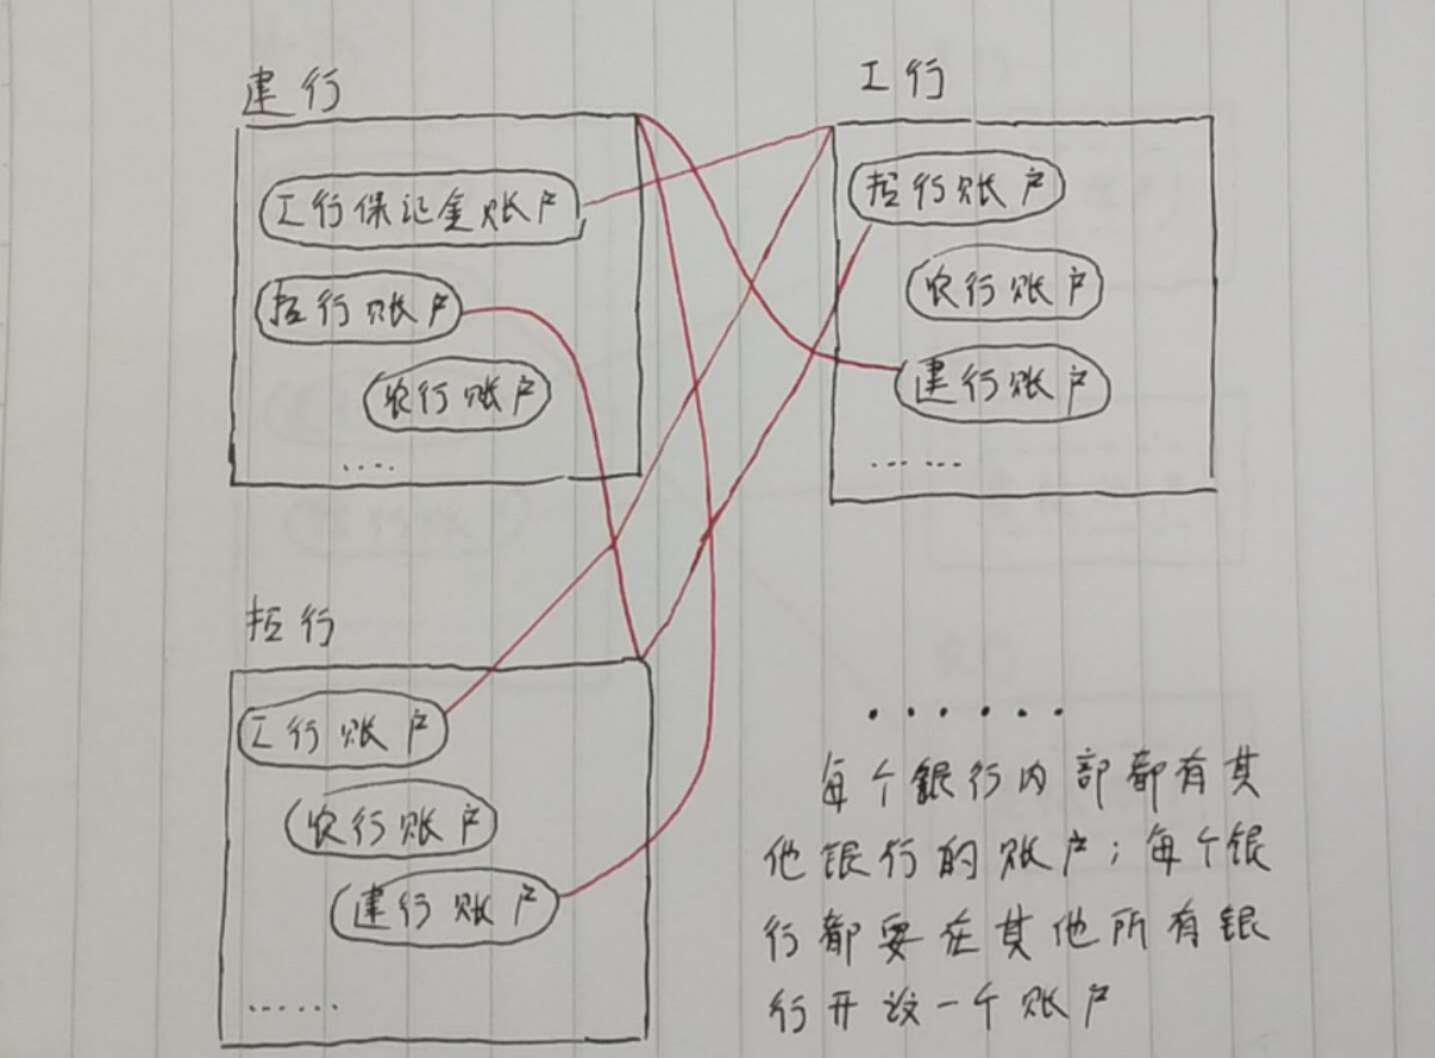 建行
工行保证金账户
招行账户
农行账户
....
工行
招行账户
农行账户
建行账户
......
招行
工行账户
农行账户
建行账户
......
......
每个银行内部都有其
他银行的账户；每个银
行都要在其他所有银
行开设一个账户